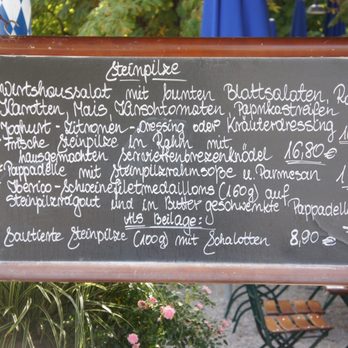 Steinpilze
Wirtshaussalat mit bunten Blattsalaten, Ra
Karotten, Mais, Kirschtomaten, Paprikastreifen
Joghurt-Zitronen-Dressing oder Kräuterdressing 1
- Frische Steinpilze in Rahm mit
hausgemachten Serviettenbrezenknödel 16,80€
- Pappadelle mit Steinpilzrahmsoße u. Parmesan 1
- Iberico-Schweinefiletmedaillons (160g) auf
Steinpilzragout und in Butter geschwenkte Pappadelle
Als Beilage:
Sautierte Steinpilze (100g) mit Schalotten 8,90€